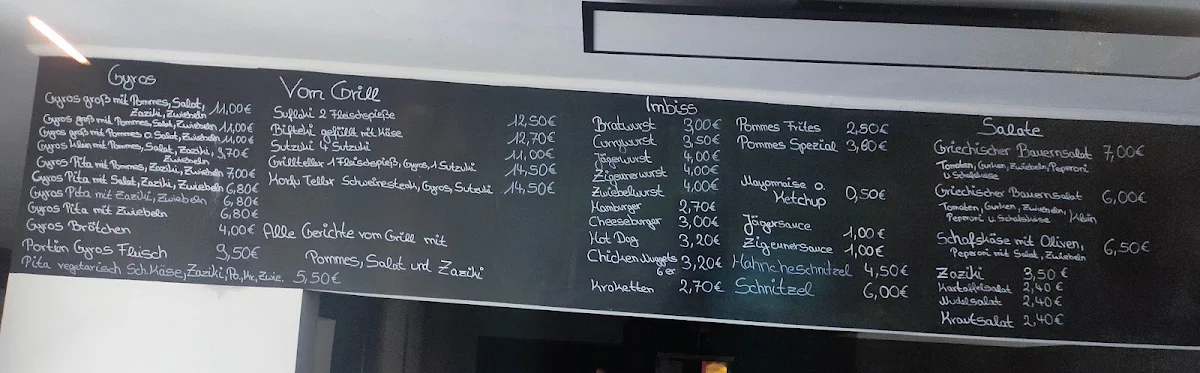 Gyros
Gyros groß mit Pommes, Salat,
Zaziki, Zwiebeln 11,00€
Gyros groß mit Pommes, Salat, Zwiebeln 11,00€
Gyros groß mit Pommes o. Salat, Zwiebeln 11,00€
Gyros klein mit Pommes, Salat, Zaziki, 9,70€
Zwiebeln
Gyros Pita mit Pommes, Zaziki, Zwiebeln 7,00€
Gyros Pita mit Salat, Zaziki, Zwiebeln 6,80€
Gyros Pita mit Zaziki, Zwiebeln 6,80€
Gyros Pita mit Zwiebeln 6,80€
Gyros Brötchen 4,00€
Portion Gyros Fleisch 9,50€
Pita vegetarisch Sch.Käse, Zaziki, Po., Kr., Zwie. 5,50€
Vom Grill
Suflaki 2 Fleischspieße 12,50€
Bifteki gefüllt mit Käse 12,70€
Sutzuki 4 Sutzuki 11,00€
Grillteller 1 Fleischspieß, Gyros, 1 Sutzuki 14,50€
Korfu Teller Schweinesteak, Gyros, Sutzuki 14,50€
Alle Gerichte vom Grill mit
Pommes, Salat und Zaziki
Imbiss
Bratwurst 3,00€
Currywurst 3,50€
Jägerwurst 4,00€
Zigeunerwurst 4,00€
Zwiebelwurst 4,00€
Hamburger 2,70€
Cheeseburger 3,00€
Hot Dog 3,20€
Chicken Nuggets 3,20€
6er
Kroketten 2,70€
Pommes Frites 2,50€
Pommes Spezial 3,80€
Mayonnaise o.
Ketchup 0,50€
Jägersauce 1,00€
Zigeunersauce 1,00€
Hähncheschnitzel 4,50€
Schnitzel 6,00€
Salate
Griechischer Bauernsalat 7,00€
Tomaten, Gurken, Zwiebeln, Peperoni
u Schafskäse
Griechischer Bauernsalat 6,00€
Tomaten, Gurken, Zwiebeln, Klein
Peperoni u. Schafskäse
Schafskäse mit Oliven, 6,50€
Peperoni mit Salat, Zwiebeln
Zaziki 3,50€
Kartoffelsalat 2,40€
Nudelsalat 2,40€
Krautsalat 2,40€